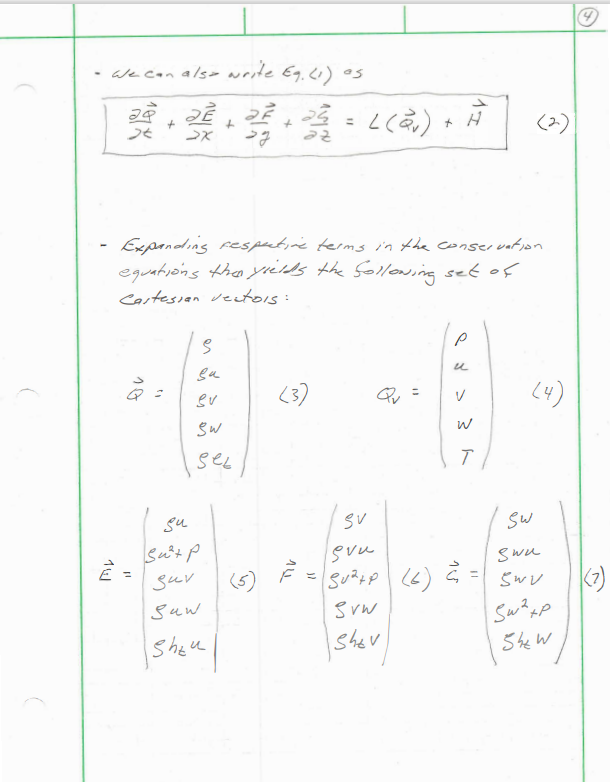 4
- We can also write Eq. (1) as
∂Q⃗/∂t + ∂E⃗/∂x + ∂F⃗/∂y + ∂G⃗/∂z = L(Q⃗ᵥ) + H⃗ (2)
- Expanding respective terms in the conservation
equations then yields the following set of
Cartesian vectors:
Q⃗ = (ρ, ρu, ρv, ρw, ρeₜ) (3) Qᵥ = (p, u, v, w, T) (4)
E⃗ = (ρu, ρu²+p, ρuv, ρuw, ρhₜu) (5) F⃗ = (ρv, ρvu, ρv²+p, ρvw, ρhₜv) (6) G⃗ = (ρw, ρwu, ρwv, ρw²+p, ρhₜw) (7)